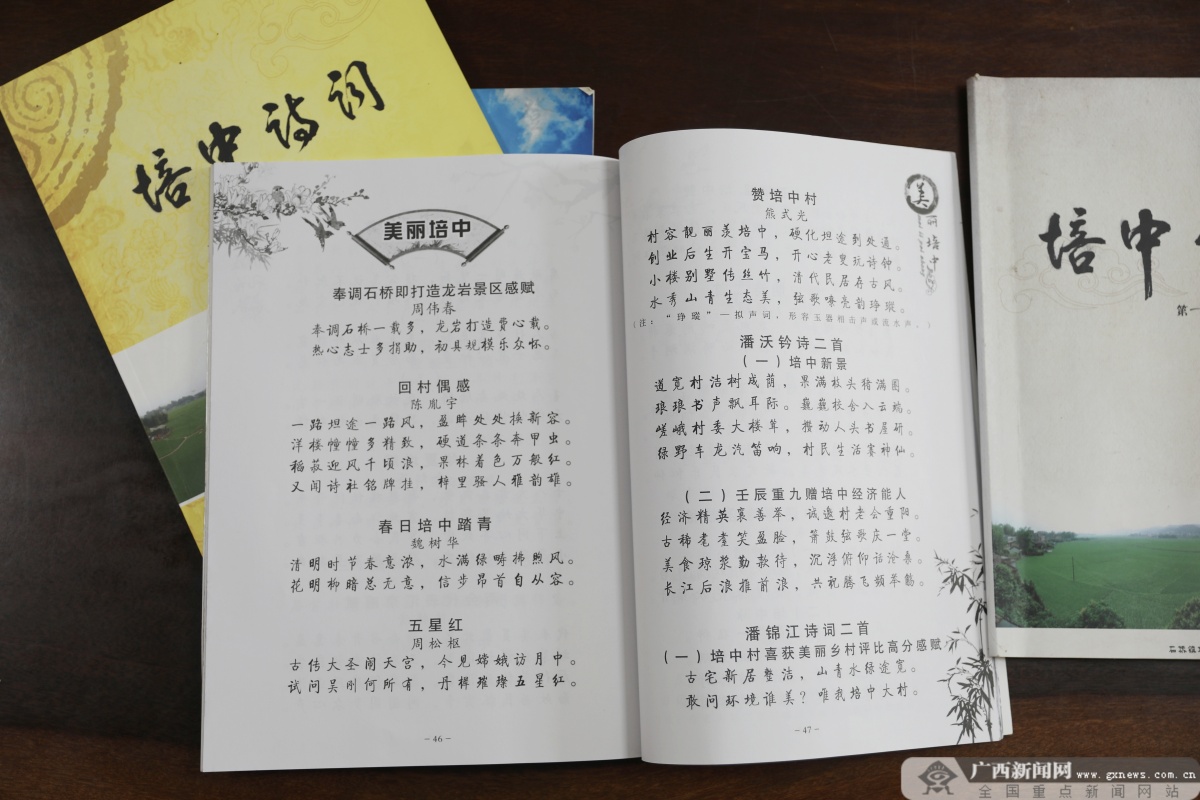 培中诗词
美丽培中
奉调石桥即打造龙岩景区感赋
周伟春
奉调石桥一载多，龙岩打造费心载。
热心志士多捐助，初具规模乐众怀。
回村偶感
陈胤宇
一路坦途一路风，盈眸处处换新容。
洋楼幢幢多精致，硬道条条奔甲虫。
稻菽迎风千顷浪，果林着色万般红。
又闻诗社铭牌挂，梓里骚人雅韵雄。
春日培中踏青
魏树华
清明时节春意浓，水满绿畴拂煦风。
花明柳暗总无意，信步昂首自从容。
五星红
周松枢
古传大圣闹天宫，今见嫦娥访月中。
试问吴刚何所有，丹樨璀璨五星红。
－46－
美丽培中
赞培中村
熊式光
村容靓丽羡培中，硬化坦途到处通。
创业后生开宝马，开心老叟玩诗钟。
小楼别墅传丝竹，清代民居存古风。
水秀山青生态美，弦歌嘹亮韵琤瑽。
（注：“琤瑽”—拟声词，形容玉器相击声或流水声。）
潘沃钤诗二首
（一）培中新景
道宽村洁树成荫，果满枝头猪满圈。
琅琅书声飘耳际。巍巍校舍入云端。
嵯峨村委大楼耸，攒动人头书屋研。
绿野车龙汽笛响，村民生活赛神仙。
（二）壬辰重九赠培中经济能人
经济精英襄善举，诚邀村老会重阳。
古稀老耋笑盈脸，箫鼓弦歌庆一堂。
美食琼浆勤款待，沉浮俯仰话沧桑。
长江后浪推前浪，共祝腾飞频举觞。
潘锦江诗词二首
（一）培中村喜获美丽乡村评比高分感赋
古宅新居整洁，山青水绿途宽。
敢问环境谁美？唯我培中大村。
－47－
培中
第一
广西新闻网 www.gxnews.com.cn
全国重点新闻网站